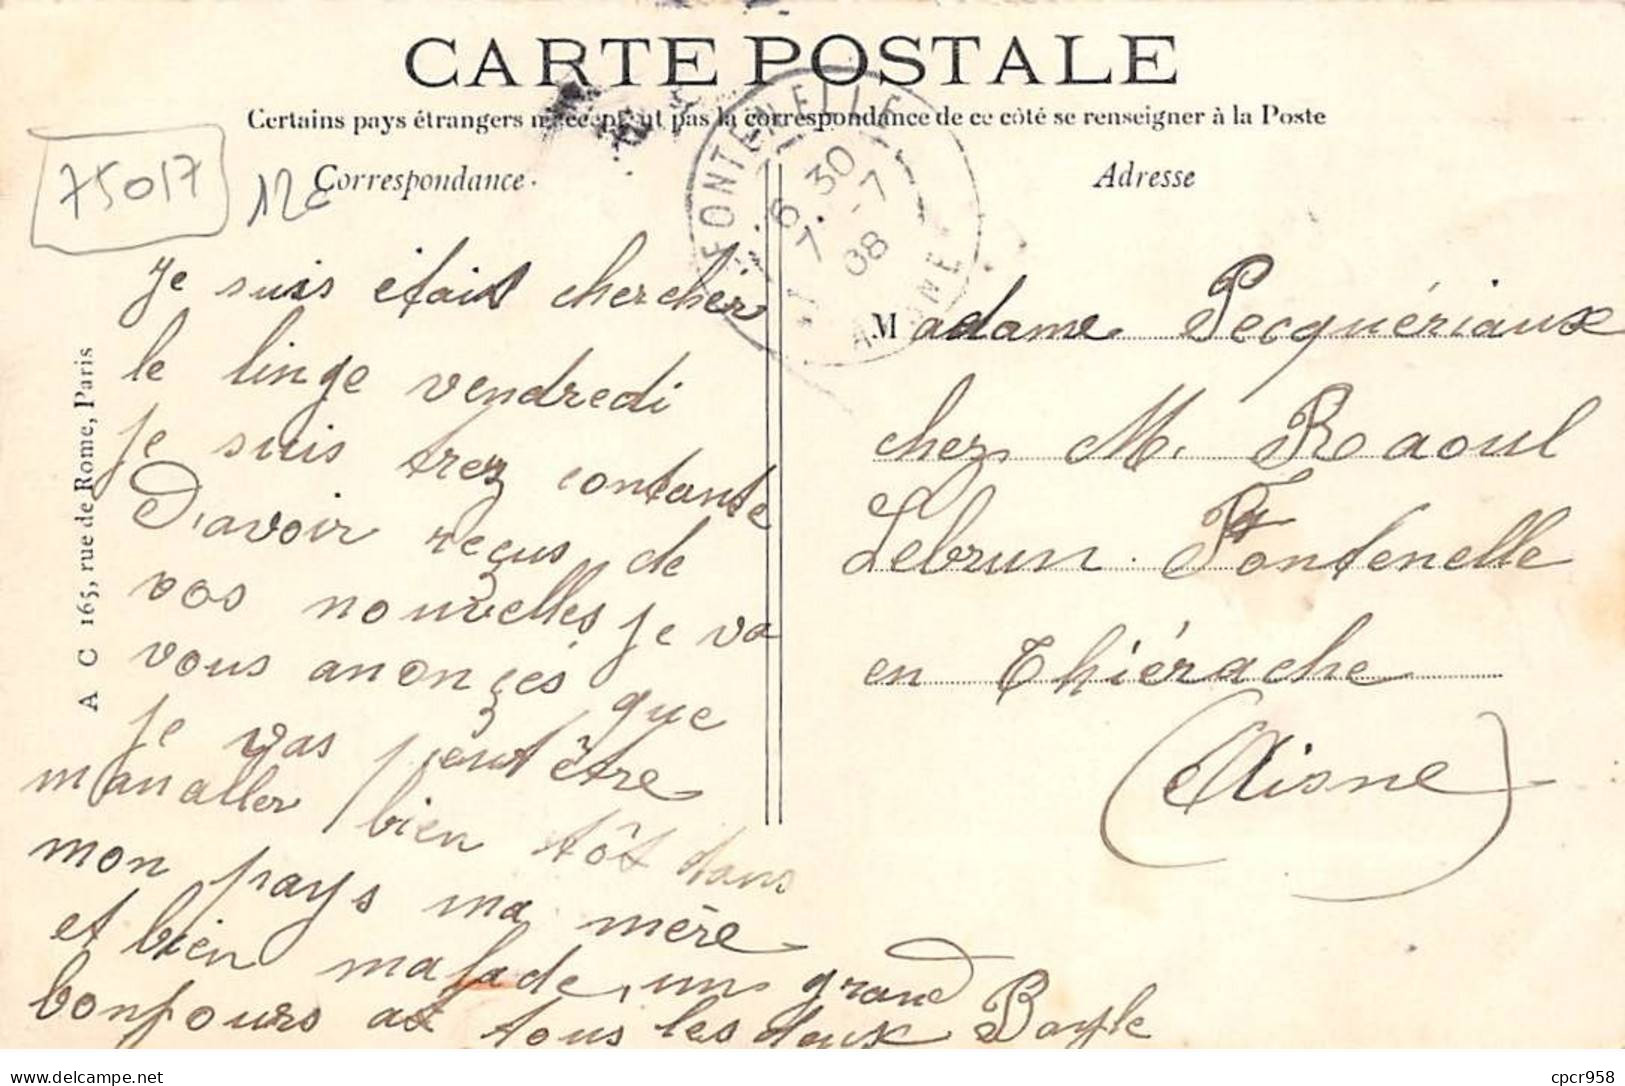 CARTE POSTALE
Certains pays étrangers n'acceptent pas la correspondance de ce côté se renseigner à la Poste
75017
12c
Correspondance.
Adresse
FONTENELLE
6 30
7 - 7
08
AISNE
Je suis etait chercher
le linge vendredi
je suis trez contante
D'avoir reçus de
vos nouvelles je va
vous anonçés que
je vas peut être
manaller bien tôt dans
mon pays ma mère
et bien malade, un grand
bonjours at tous les deux Bayle
Madame Pecquériaux
chez M. Raoul
Lebrun. Fontenelle
en Thiérache
(Aisne)
A C 165, rue de Rome, Paris
delcampe.net
cpcr958